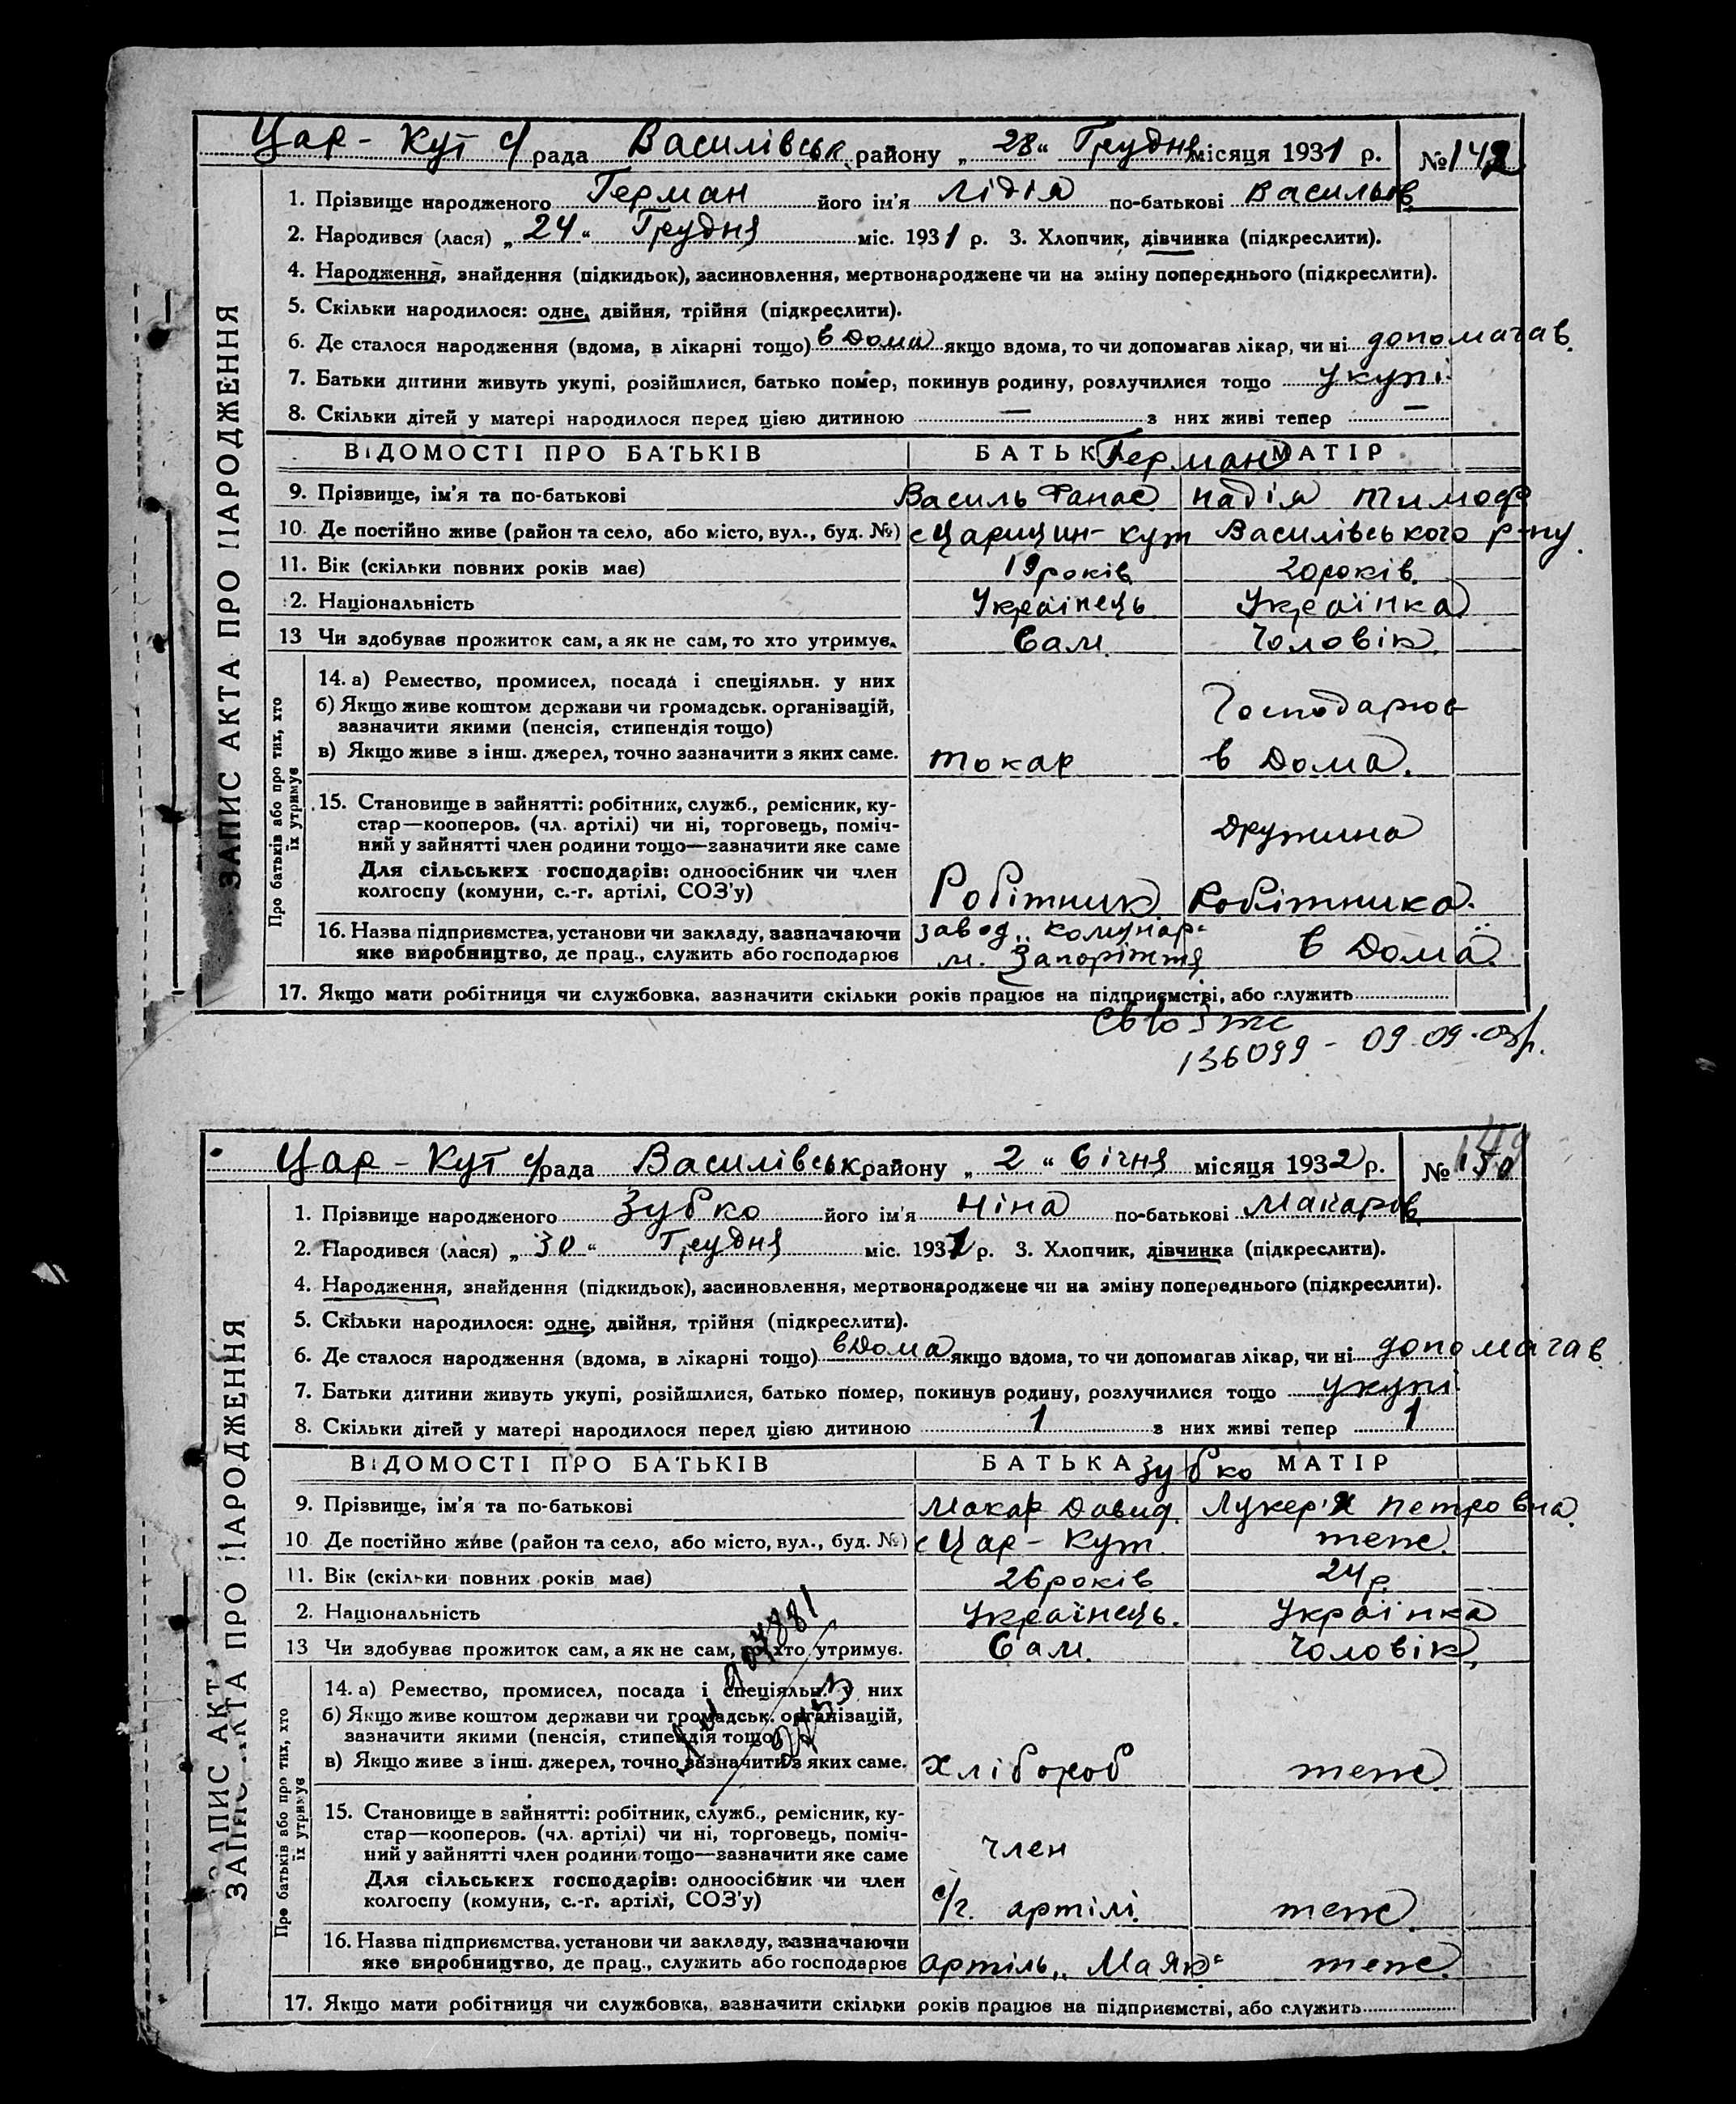 Цар-Кут с/рада Василівськ. району „28“ Грудня місяця 1931 р. №142
ЗАПИС АКТА ПРО НАРОДЖЕННЯ
1. Прізвище народженого Герман його ім'я Лідія по-батькові Васильів.
2. Народився (лася) „24“ Грудня міс. 1931 р. 3. Хлопчик, дівчинка (підкреслити).
4. Народження, знайдення (підкидьок), засиновлення, мертвонароджене чи на зміну попереднього (підкреслити).
5. Скільки народилося: одне, двійня, трійня (підкреслити).
6. Де сталося народження (вдома, в лікарні тощо) в Дома якщо вдома, то чи допомагав лікар, чи ні допомагав.
7. Батьки дитини живуть укупі, розійшлися, батько помер, покинув родину, розлучилися тощо укупі
8. Скільки дітей у матері народилося перед цією дитиною — з них живі тепер —
ВІДОМОСТІ ПРО БАТЬКІВ БАТЬКА Герман МАТІР
9. Прізвище, ім'я та по-батькові Василь Фанас Надія Тимоф.
10. Де постійно живе (район та село, або місто, вул., буд. №) с Царицин-Кут Василівського р-ну.
11. Вік (скільки повних років має) 19 років 20 років.
12. Національність Українець Українка
13 Чи здобуває прожиток сам, а як не сам, то хто утримує. Сам. Чоловік.
Про батьків або про тих, хто їх утримує
14. а) Ремество, промисел, посада і спеціяльн. у них
б) Якщо живе коштом держави чи громадськ. організацій,
зазначити якими (пенсія, стипендія тощо) Господарює
в) Якщо живе з інш. джерел, точно зазначити з яких саме. токар в Дома.
15. Становище в зайнятті: робітник, служб., ремісник, ку-
стар—кооперов. (чл. артілі) чи ні, торговець, поміч- Дружина
ний у зайнятті член родини тощо—зазначити яке саме
Для сільських господарів: одноосібник чи член
колгоспу (комуни, с.-г. артілі, СОЗ'у) Робітник. Робітника.
16. Назва підприємства, установи чи закладу, зазначаючи завод „Комунар“
яке виробництво, де прац., служить або господарює м. Запоріжжя в Дома.
17. Якщо мати робітниця чи службовка, зазначити скільки років працює на підприємстві, або служить
136099 - 09.09.03р.
Цар-Кут с/рада Василівськ району „2“ Січня місяця 1932 р. № 150
149
ЗАПИС АКТА ПРО НАРОДЖЕННЯ
ЗАПИС АКТ
1. Прізвище народженого Зубко його ім'я Ніна по-батькові Макарів.
2. Народився (лася) „30“ Грудня міс. 1931 р. 3. Хлопчик, дівчинка (підкреслити).
4. Народження, знайдення (підкидьок), засиновлення, мертвонароджене чи на зміну попереднього (підкреслити).
5. Скільки народилося: одне, двійня, трійня (підкреслити).
6. Де сталося народження (вдома, в лікарні тощо) в Дома якщо вдома, то чи допомагав лікар, чи ні допомагав
7. Батьки дитини живуть укупі, розійшлися, батько помер, покинув родину, розлучилися тощо укупі
8. Скільки дітей у матері народилося перед цією дитиною 1 з них живі тепер 1
ВІДОМОСТІ ПРО БАТЬКІВ БАТЬКА Зубко МАТІР
9. Прізвище, ім'я та по-батькові Макар Давид. Лукер'я Петровна.
10. Де постійно живе (район та село, або місто, вул., буд. №) с Цар-Кут теж.
11. Вік (скільки повних років має) 26 років 24 р.
2. Національність Українець. Українка
13 Чи здобуває прожиток сам, а як не сам, то хто утримує. Сам. Чоловік,
Про батьків або про тих, хто їх утримує
14. а) Ремество, промисел, посада і спеціяльн. у них
б) Якщо живе коштом держави чи громадськ. організацій,
зазначити якими (пенсія, стипендія тощо)
в) Якщо живе з інш. джерел, точно зазначити з яких саме. Хлібороб теж.
15. Становище в зайнятті: робітник, служб., ремісник, ку-
стар—кооперов. (чл. артілі) чи ні, торговець, поміч- член
ний у зайнятті член родини тощо—зазначити яке саме
Для сільських господарів: одноосібник чи член
колгоспу (комуни, с.-г. артілі, СОЗ'у) с/г. артілі. теж.
16. Назва підприємства, установи чи закладу, зазначаючи
яке виробництво, де прац., служить або господарює артіль „Маяк“ теж.
17. Якщо мати робітниця чи службовка, зазначити скільки років працює на підприємстві, або служить